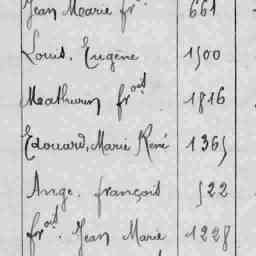 Jean Marie frois 661
Louis, Eugène 1500
Mathurin frois 1816
Edouard, Marie René 1365
Ange. françois 522
frois. Jean Marie 1228